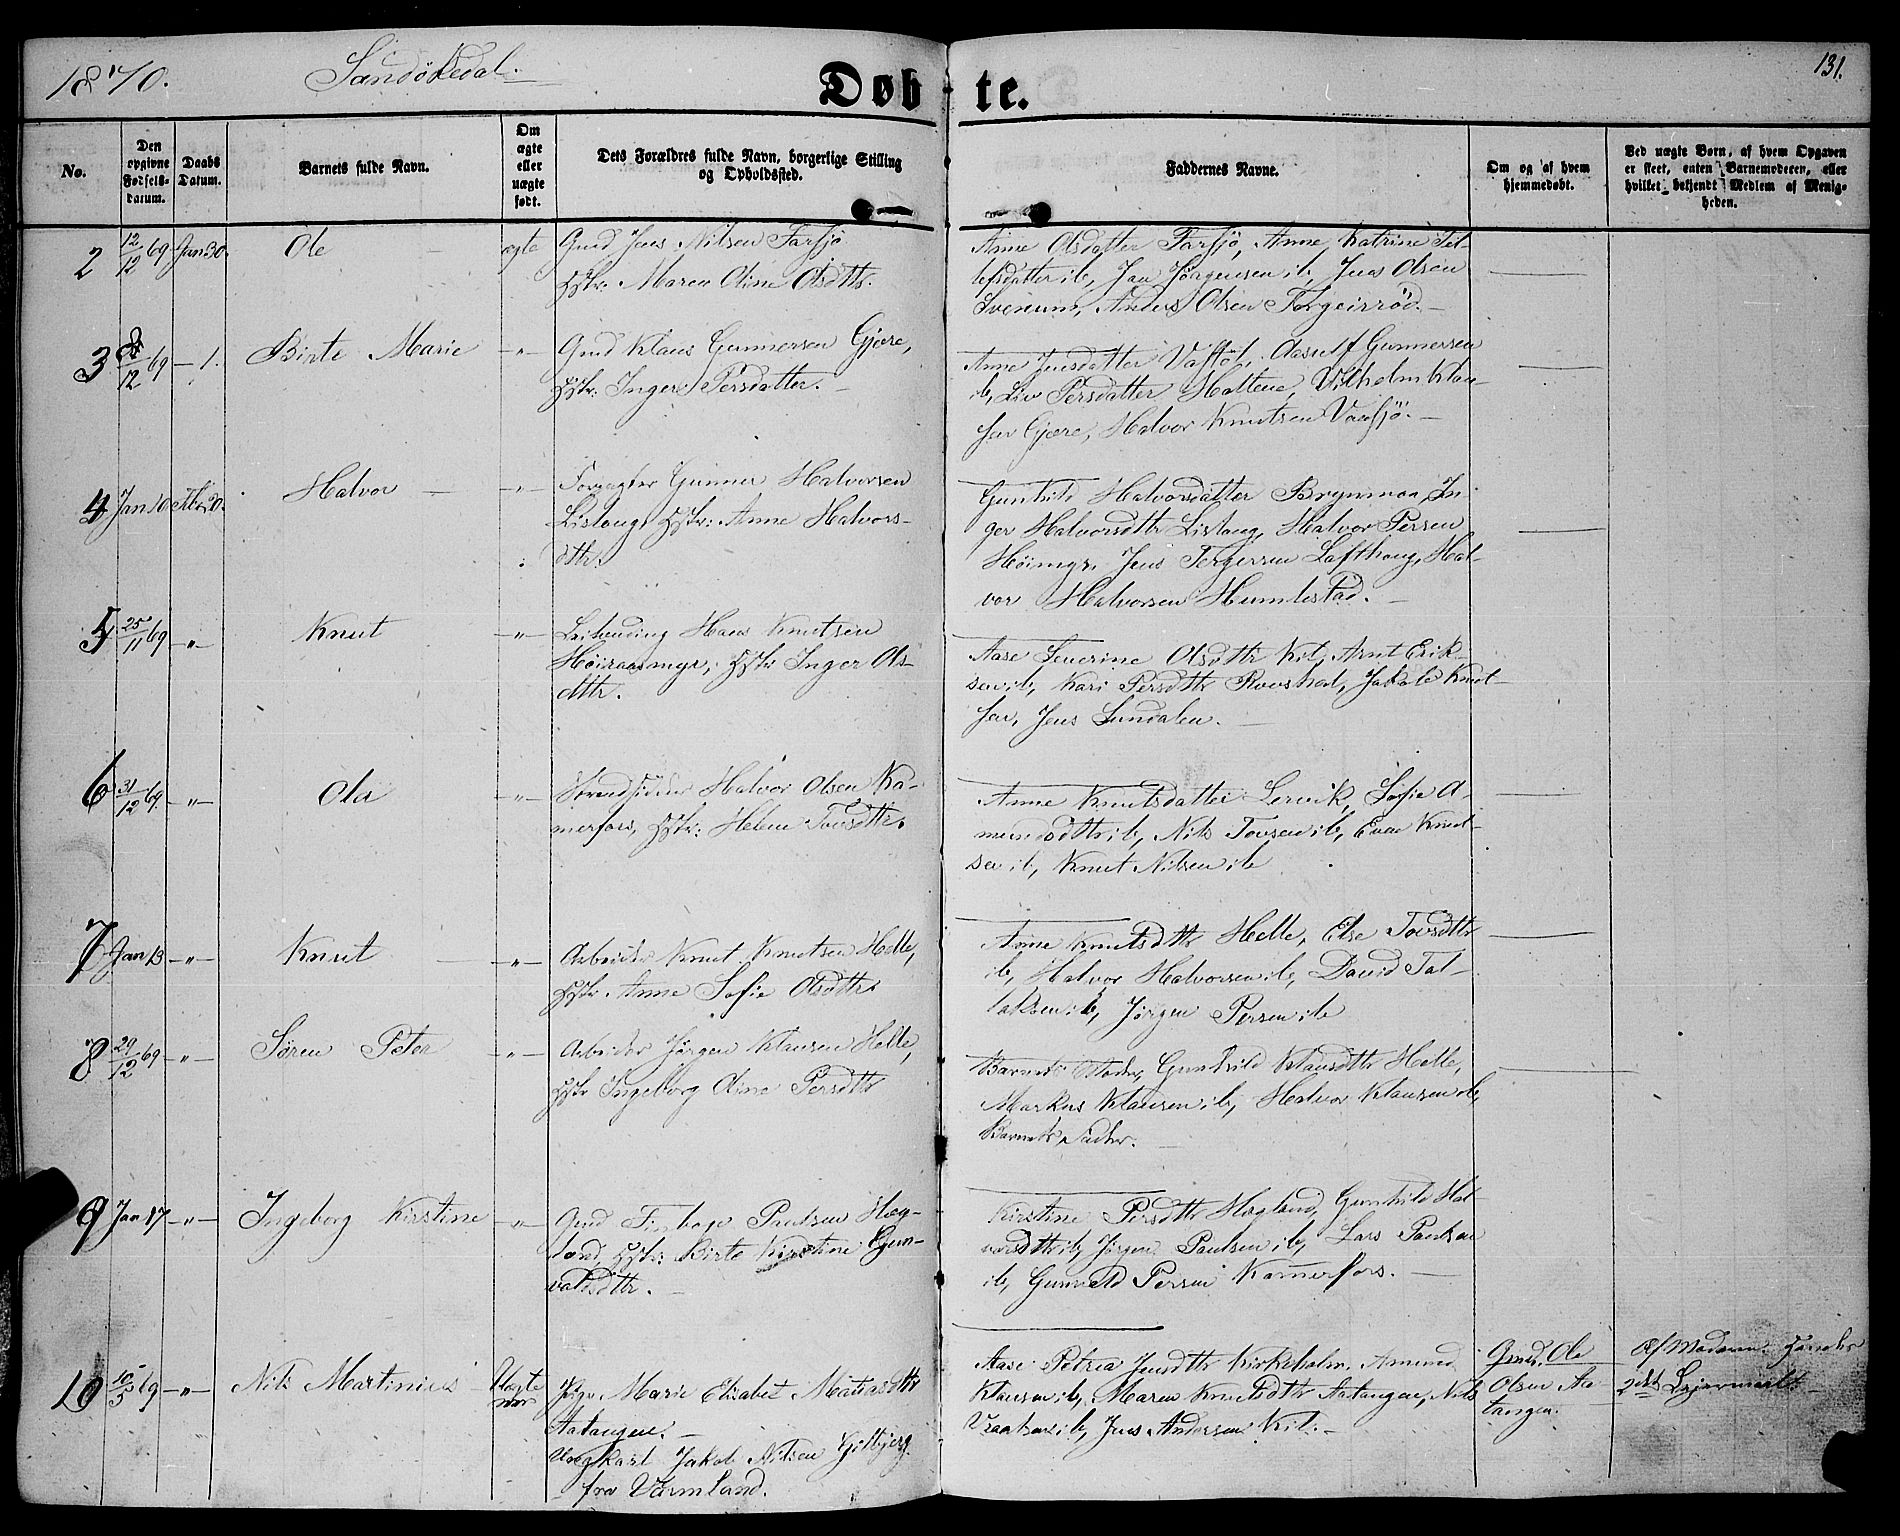 1870. Sandøkedal.
Døbte.
131.
No.
Den opgivne Fødsels-datum.
Daabs Datum.
Barnets fulde Navn.
Om ægte eller uægte født.
Dets Forældres fulde Navn, borgerlige Stilling og Opholdssted.
Faddernes Navne.
Om og af hvem hjemmedøbt.
Ved uægte Børn, af hvem Opgaven er skeet, enten Barnemoderen, eller hvilket bekjendt Medlem af Menigheden.
2 12/12 69 Jan 30. Ole ægte Gmd Jens Nilsen Farsjø
Hstr. Maren Oline Olsdttr.
Anne Olsdatter Farsjø, Anne Katrine Tet-
lefsdatter ib, Jan Jørgensen ib, Jens Olsen
Svenum, Anders Olsen Torgeirrød.
3 8/12 69 — 1. Birte Marie —"— Gmd Klaus Gunnersen Gjære,
Hstr. Inger Persdatter.
Anne Jensdatter Vaftøl, Aasulf Gunnersen
ib, Liv Persdatter Holtene, Vilhelm Klau-
sen Gjære, Halvor Knutsen Vaasjø.
4 Jan 10 Febr 20. Halvor —"— Forpagter Gunner Halvorsen
Lislaug, Hstr: Anne Halvors-
dttr.
Gunhild Halvorsdatter Brynmoa, In-
ger Halvorsdttr Lislaug, Halvor Persen
Høimyr, Jens Tergersen Lofthaug, Hal-
vor Halvorsen Humlestad.
5 25/11 69 —"— Knut —"— Leilending Hans Knutsen
Høiraasmyr, Hstr Inger Ols-
dttr.
Aase Severine Olsdttr Kil, Arnt Erik-
sen ib, Kari Persdttr Rovshol, Jakob Knut-
sen, Jens Sundalen.
6 31/12 69 —"— Ola —"— Strandsidder Halvor Olsen Ka-
merfors, Hstr: Helene Tovsdttr.
Anne Knutsdatter Lervik, Sofie A-
mundsdttr ib, Nils Tovsen ib, Even Knut-
sen ib, Knut Nilsen ib
7 Jan 13 —"— Knut —"— Arbeider Knut Knutsen Helle,
Hstr. Anne Sofie Olsdttr.
Anne Knutsdttr Helle, Else Tovsdttr
ib, Halvor Halvorsen ib, David Tal-
laksen ib, Jørgen Persen ib
8 29/12 69 —"— Søren Peter —"— Arbeider Jørgen Klausen Helle,
Hstr Ingeborg Oline Persdttr
Barnets Moder, Gunhild Klausdttr Helle,
Markus Klausen ib, Halvor Klausen ib,
Barnets Fader.
9 Jan 17 —"— Ingeborg Kirstine —"— Gmd Fingboge Paulsen Hog-
land, Hstr: Birte Kirstine Gun-
valdsdttr.
Kirstine Persdttr Hogland, Gunhild Hal-
vorsdttr ib, Jørgen Paulsen ib, Lars Paulsen
ib, Gunvald Persen Kamerfors.
10 10/5 69 —"— Nils Martinius Uægte Pige Marie Elisabet Matiasdttr
Aatangen.
Ungkarl Jakob Nilsen Gilbjerg
fra Värmland.
Aase Petrea Jensdttr Kirkeholm, Amund
Klausen ib, Maren Knutsdttr Aatangen, Nils
Vraalsen ib, Jens Andersen Kil.
Gmd. Ole
Olsen Aa-
tangen.
Af Moderen
2det Leiermaal